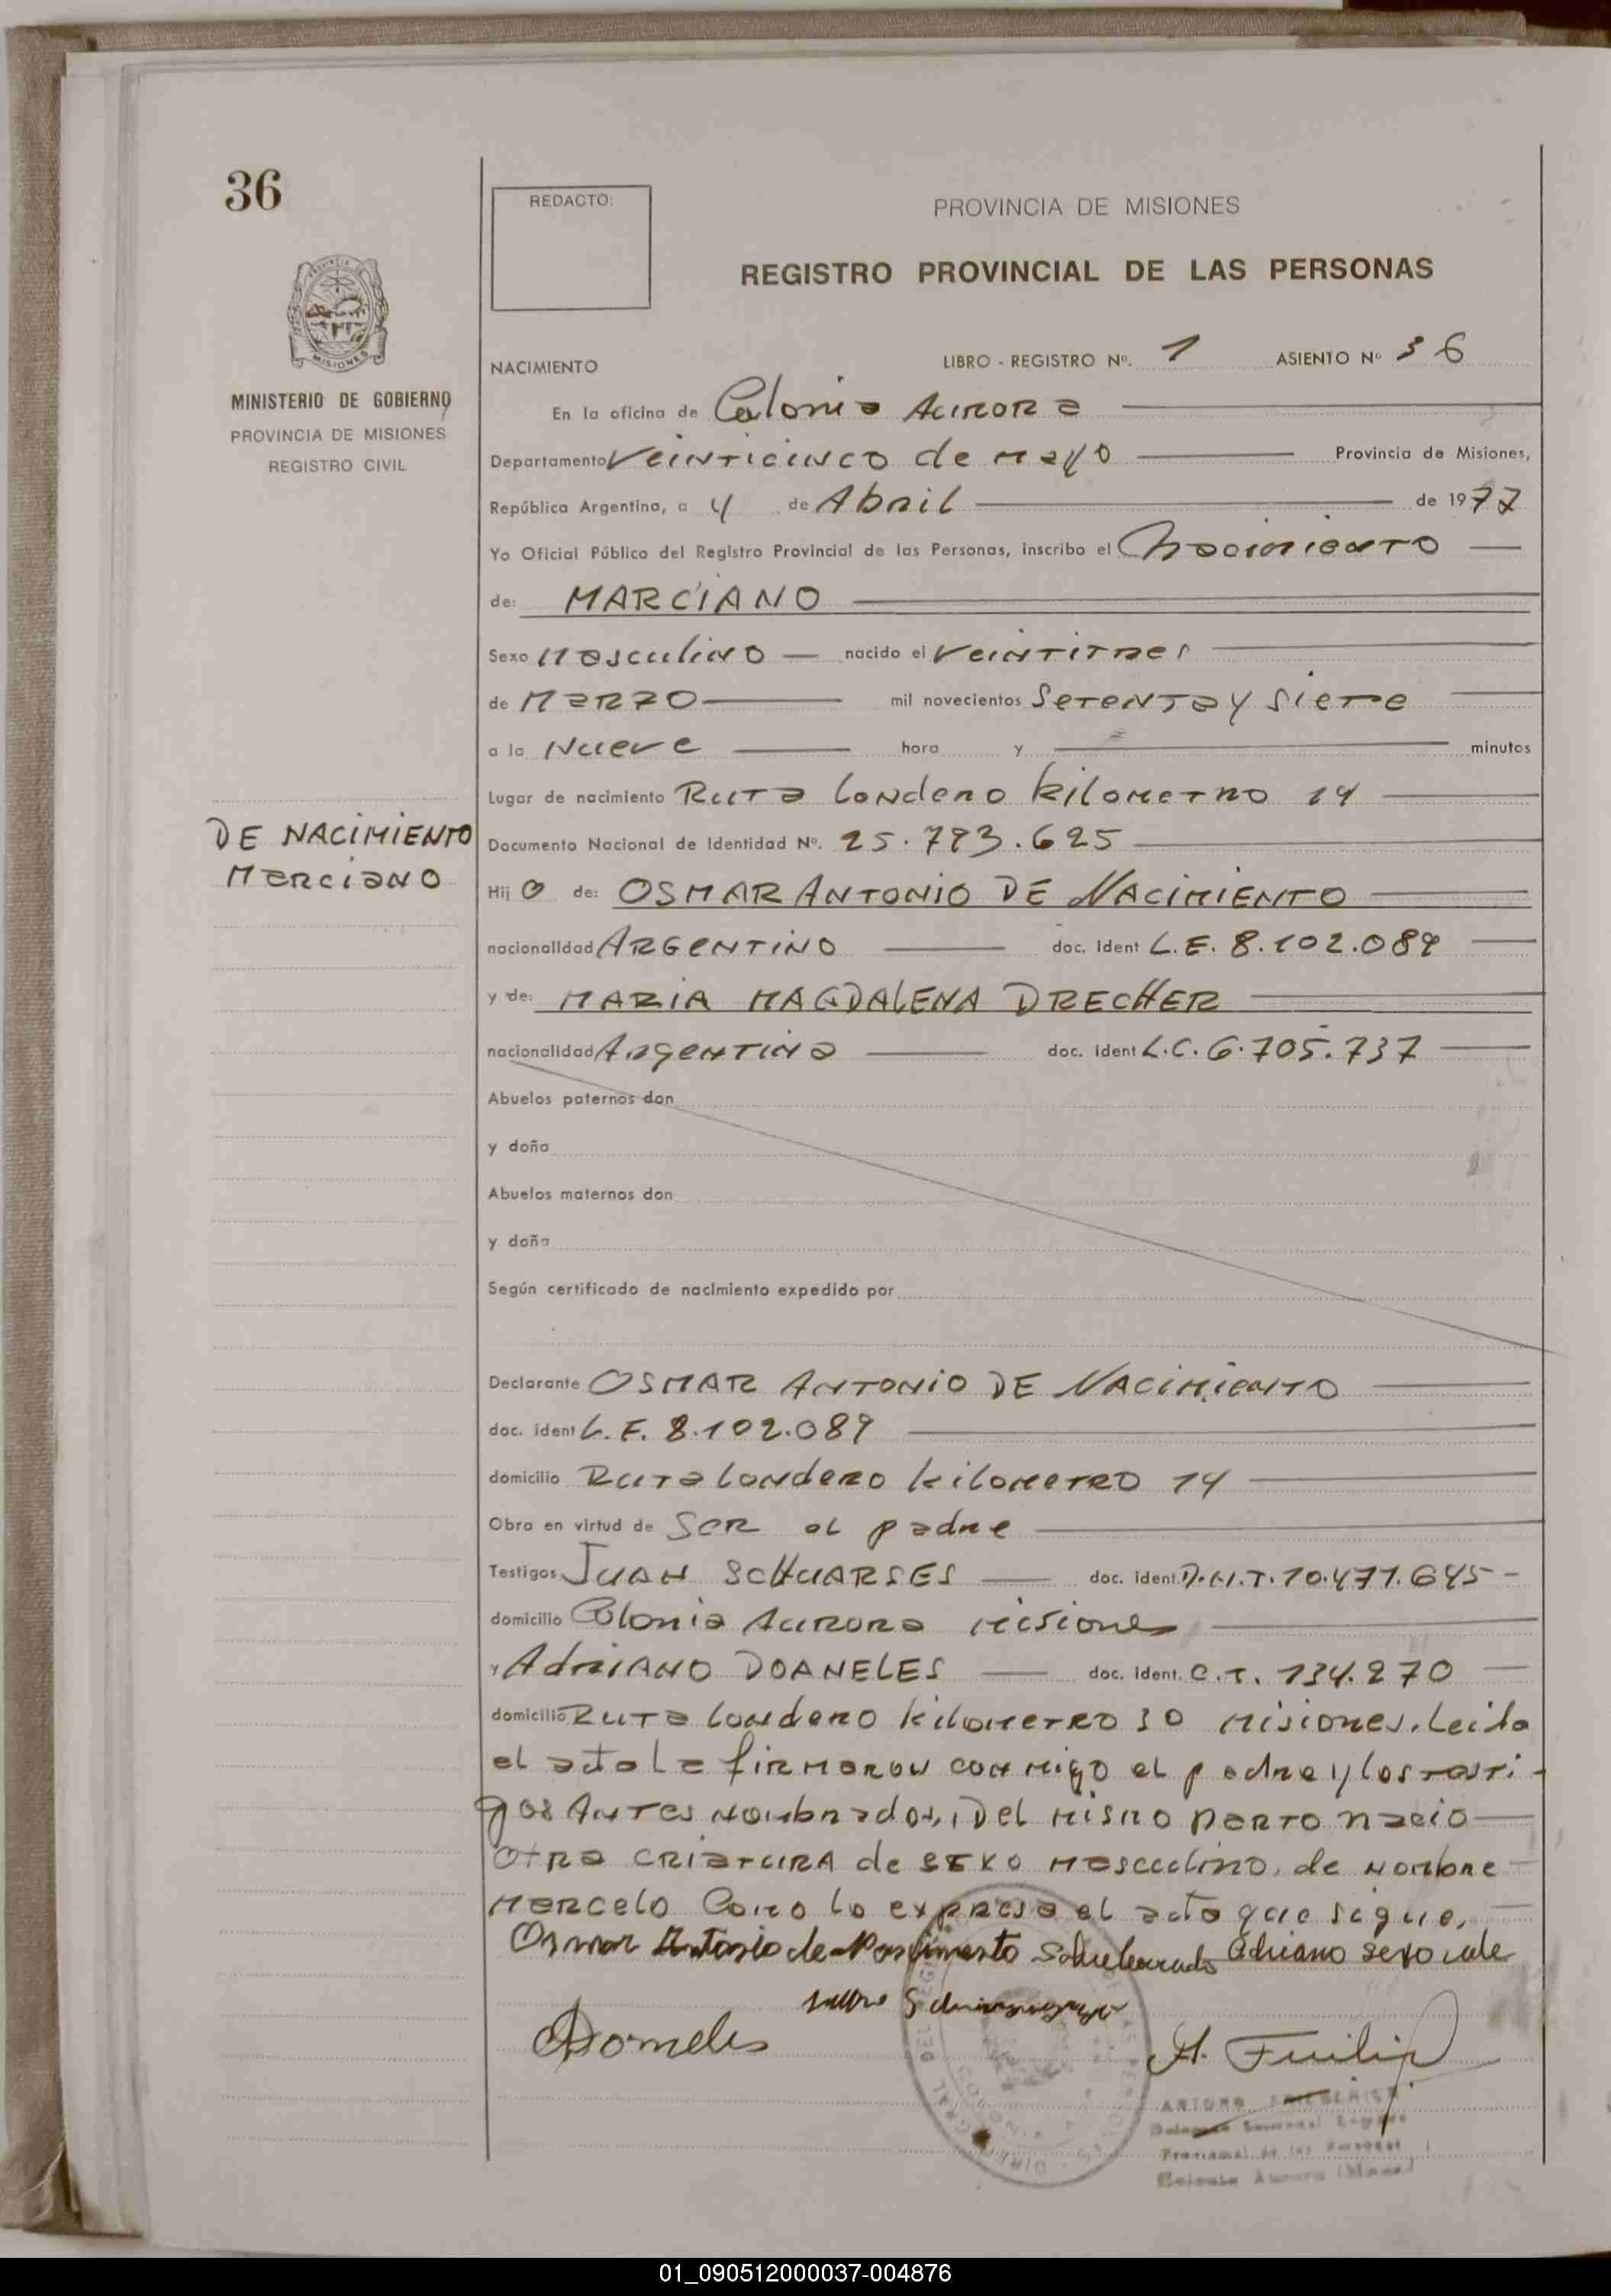 36
REDACTO:
PROVINCIA DE MISIONES
REGISTRO PROVINCIAL DE LAS PERSONAS
MINISTERIO DE GOBIERNO
PROVINCIA DE MISIONES
REGISTRO CIVIL
NACIMIENTO LIBRO - REGISTRO Nº. 1 ASIENTO Nº 36
En la oficina de Colonia Aurora
Departamento Veinticinco de Mayo Provincia de Misiones,
República Argentina, a 4 de Abril de 1977
Yo Oficial Público del Registro Provincial de las Personas, inscribo el Nacimiento
de: MARCIANO
Sexo Masculino nacido el Veintitres
de Marzo mil novecientos Setenta y Siete
a la Nueve hora y minutos
Lugar de nacimiento Ruta Londero kilometro 14
DE NACIMIENTO
Marciano
Documento Nacional de Identidad Nº. 25.793.625
Hijo de: OSMAR ANTONIO DE NACIMIENTO
nacionalidad ARGENTINO doc. ident L.E. 8.102.089
y de: MARIA MAGDALENA DRECHER
nacionalidad Argentina doc. ident L.C. 6.705.737
Abuelos paternos don
y doña
Abuelos maternos don
y doña
Según certificado de nacimiento expedido por
Declarante OSMAR ANTONIO DE NACIMIENTO
doc. ident L.E. 8.102.089
domicilio Ruta Londero kilometro 14
Obra en virtud de Ser el padre
Testigos JUAN SCHUARSES doc. ident. D.N.T. 10.471.645
domicilio Colonia Aurora Misiones
y Adriano DOANELES doc. ident. C.I. 134.270
domicilio Ruta Londero kilometro 30 Misiones. Leida
el acta la firmaron conmigo el padre y los testi-
gos Antes nombrados, Del mismo parto nacio
otra criatura de sexo masculino, de nombre
Marcelo Como lo expresa el acta que sigue.
Osmar Antonio de Adriano sexo vale
A.
ARTURO
Colonia Aurora
01_090512000037-004876